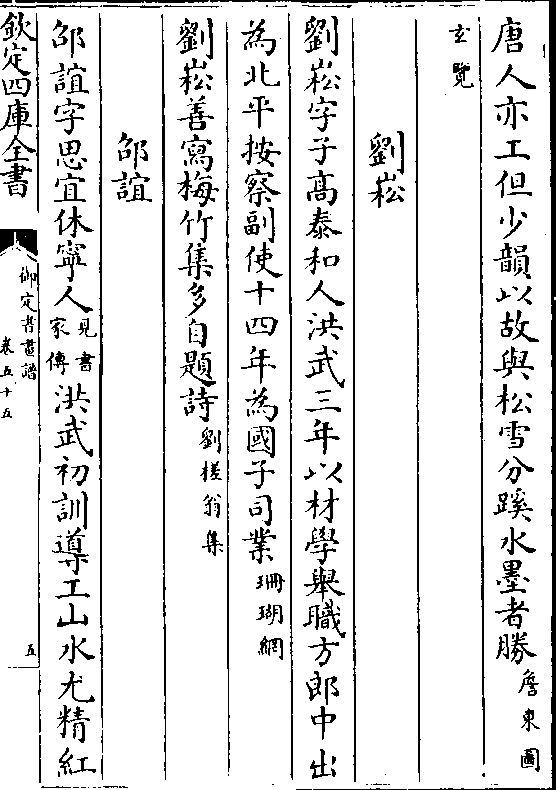 唐人亦工但少韻以故與松雪分蹊水墨者勝詹東圖
玄覽
劉崧
劉崧字子髙泰和人洪武三年以材學舉職方郎中出
為北平按察副使十四年為國子司業珊瑚網
劉崧善寫梅竹集多自題詩劉槎翁集
邵誼
邵誼字思宜休寧人見書家傳洪武初訓導工山水尤精紅
欽定四庫全書
御定書畫譜
卷五十五
五